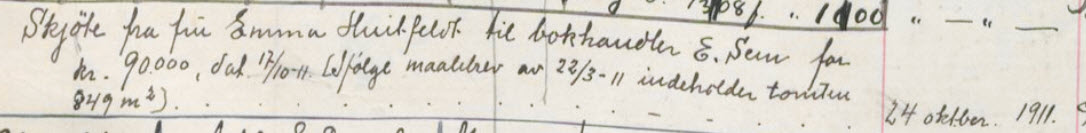 1308 f. „ 1100 „ — „ —
Skjöte fra fru Emma Huitfeldt til bokhandler E. Sem for
kr. 90.000, dat. 17/10-11. (Ifølge maalebrev av 22/3-11 indeholder tomten
849 m²). 24 oktber. 1911.